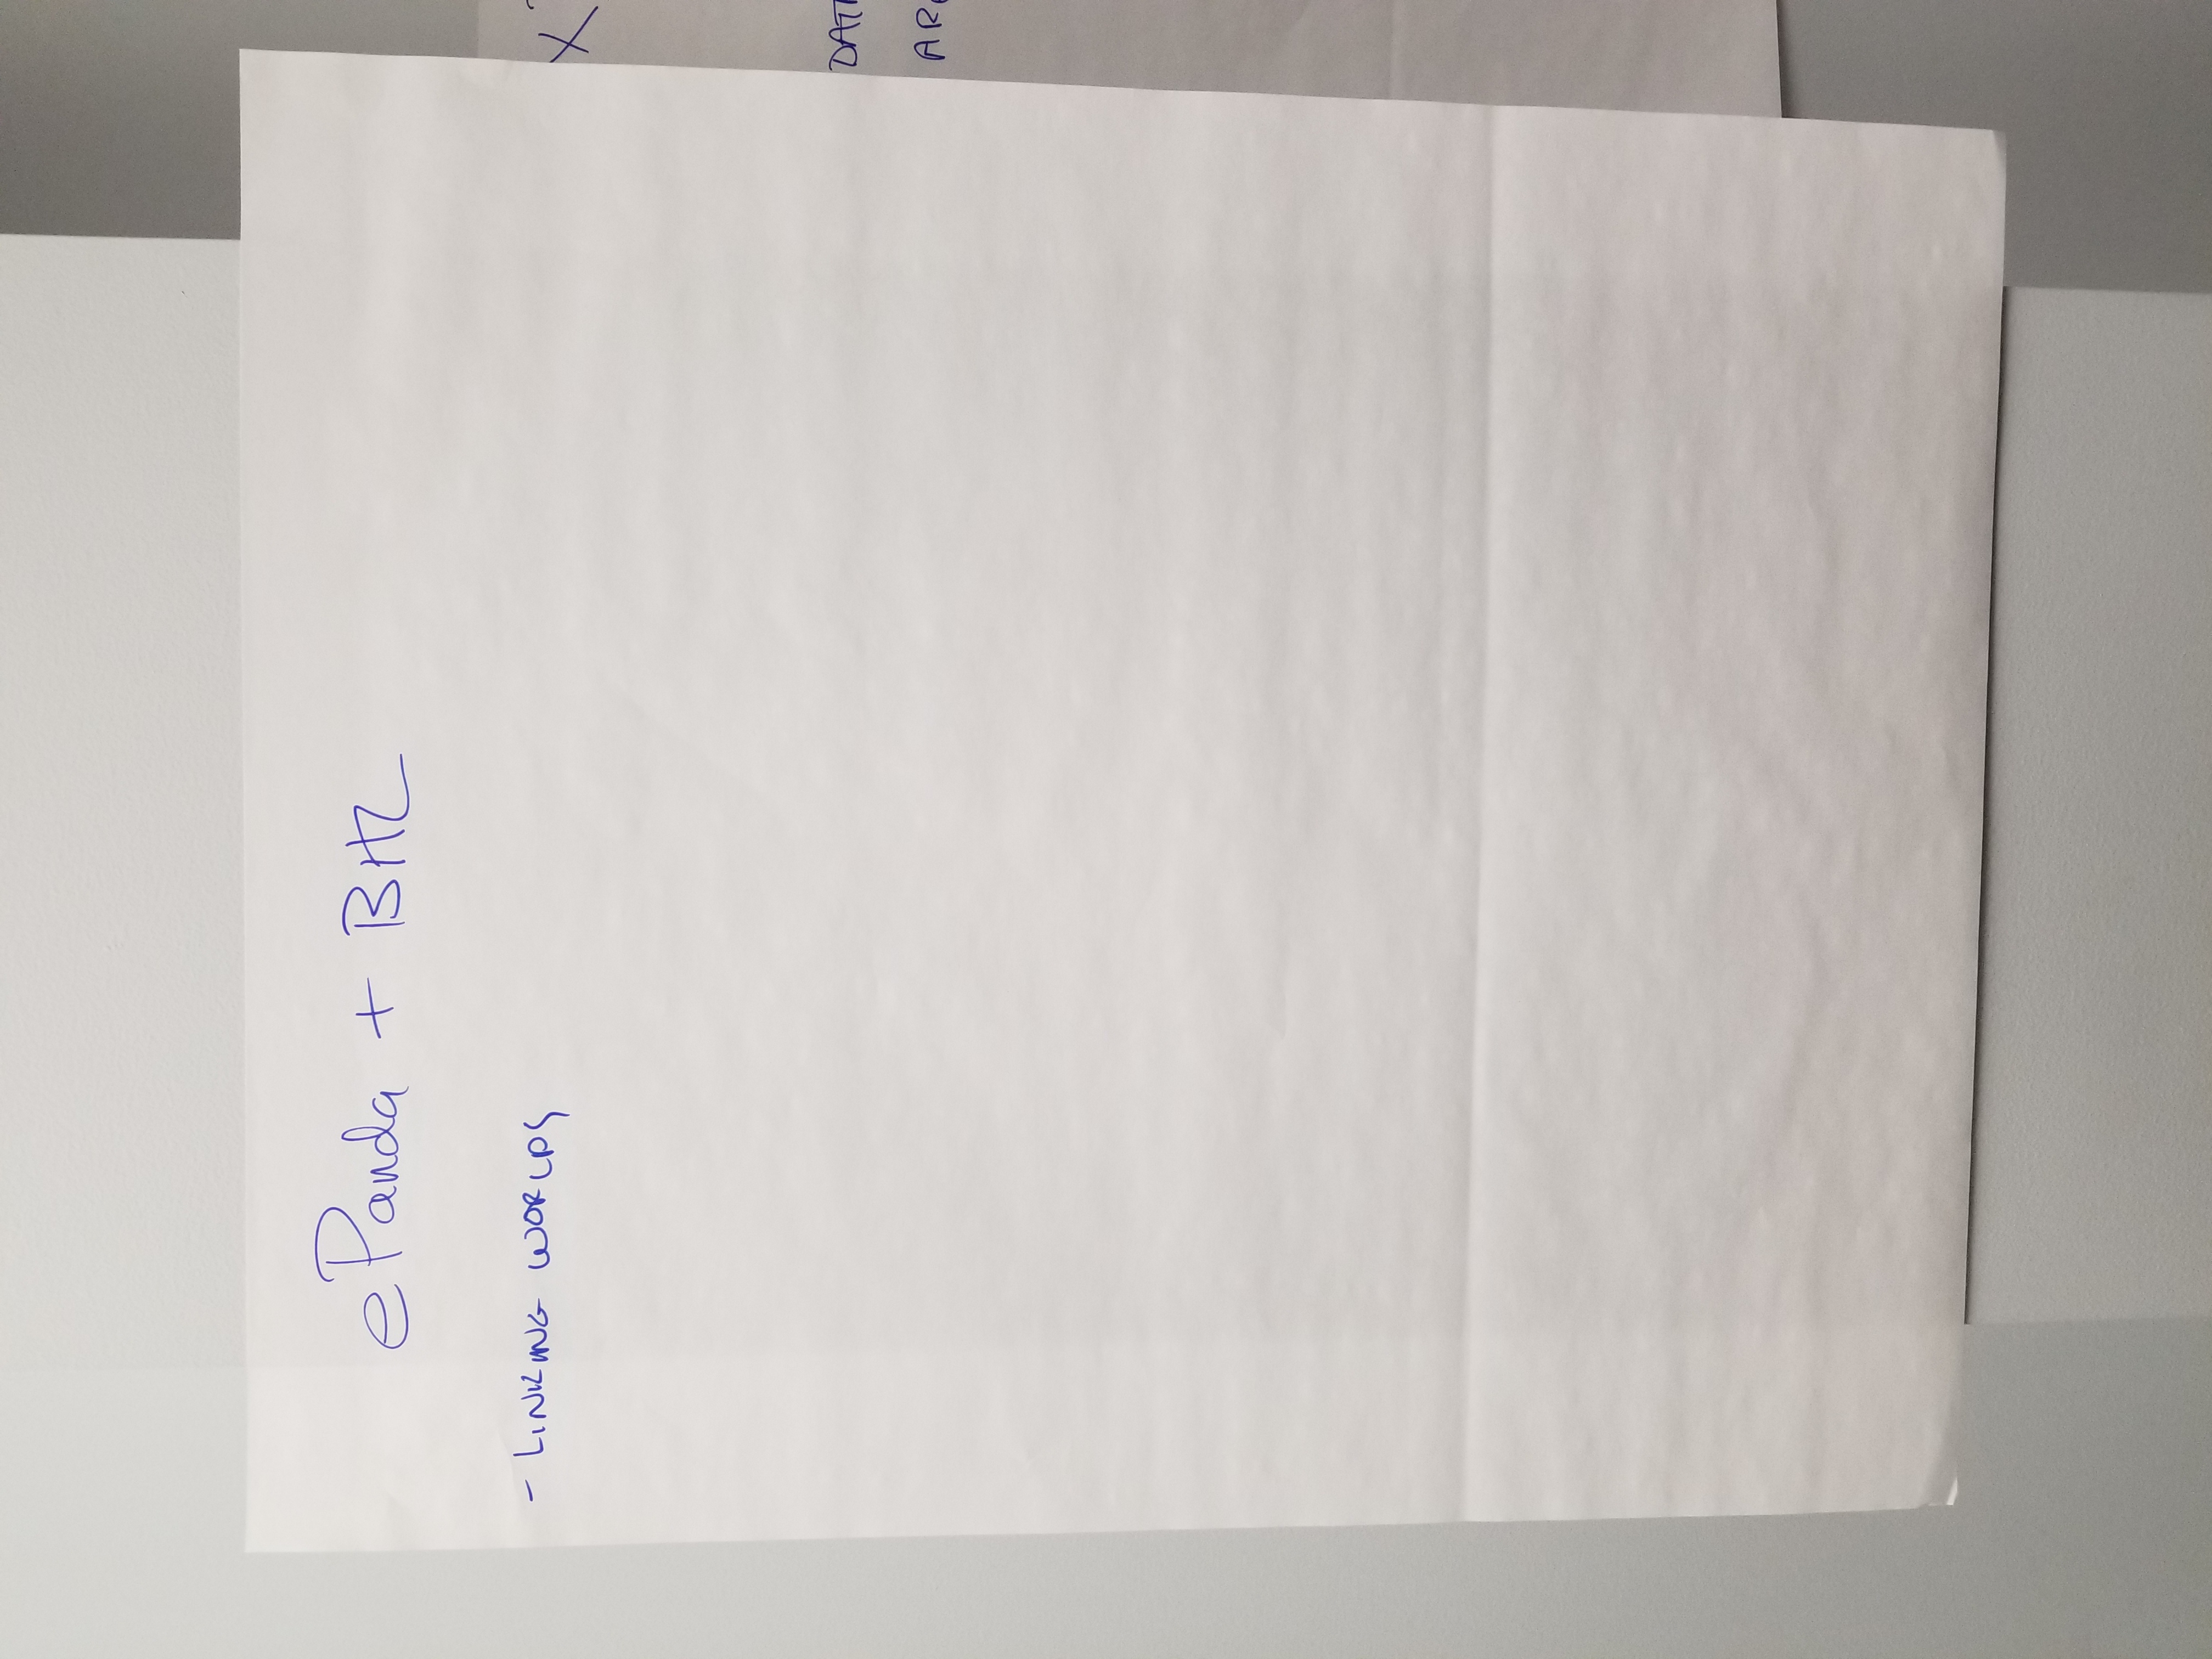 ePanda + BHL
- LINKING WORLDS
X
DAT
AR